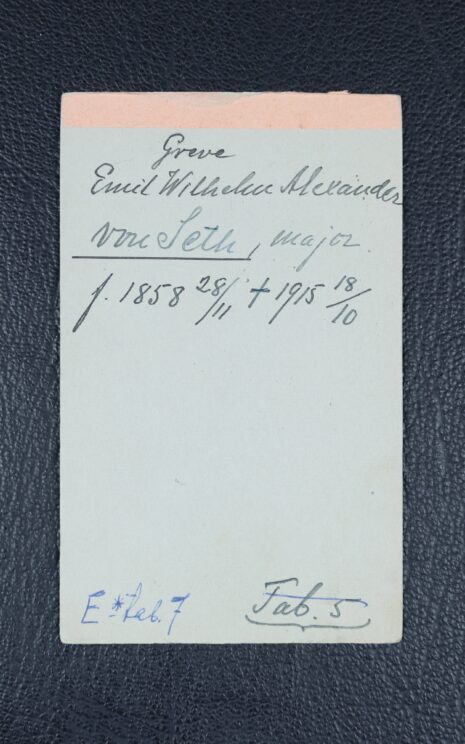 Greve
Emil Wilhelm Alexander
von Seth, major.
f. 1858 28/11 † 1915 18/10
E* Tab. 7
Tab. 5